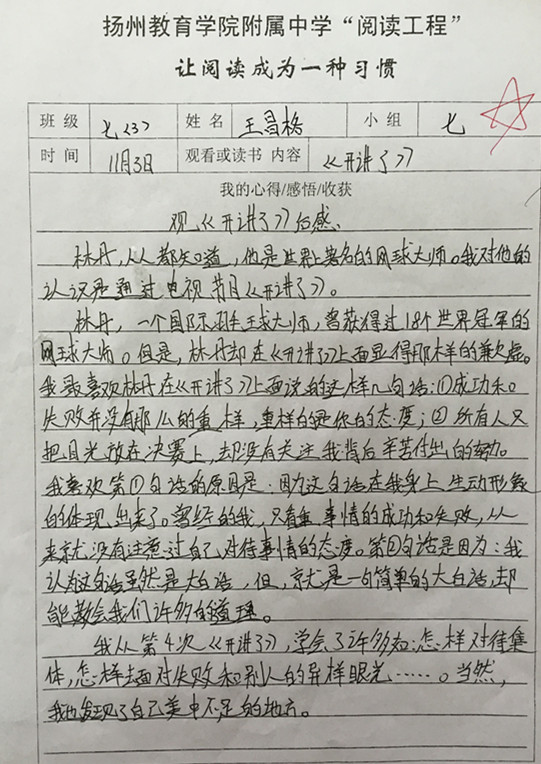 扬州教育学院附属中学“阅读工程”
让阅读成为一种习惯
班级 七(3) 姓名 王昌格 小组 七
时间 11月3日 观看或读书 内容 《开讲了》
我的心得/感悟/收获
观《开讲了》后感
林丹,人人都知道,他是世界上著名的网球大师。我对他的
认识是通过电视节目《开讲了》。
林丹,一个国际羽球大师,曾获得过18个世界冠军的
网球大师。但是,林丹却在《开讲了》上面显得那样的谦虚。
我最喜欢林丹在《开讲了》上面说的这样几句话:①成功和
失败并没有那么的重样,重样的是你的态度;②所有人只
把目光放在决赛上,却没有关注我背后辛苦付出的努力。
我喜欢第①句话的原因是:因为这句话在我身上生动形象
的体现出来了。曾经的我,只看重事情的成功和失败,从
来就没有注意过自己对待事情的态度。第②句话是因为:我
认为这句话虽然是大白话,但,就是一句简单的大白话,却
能教会我们许多的道理。
我从第4次《开讲了》,学会了许多如:怎样对待集
体,怎样去面对失败和别人的异样眼光……。当然,
我也发现了自己美中不足的地方。